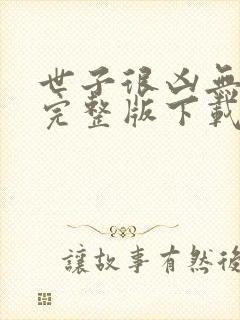 世子很凶無
完整版下載
讓故事有然後